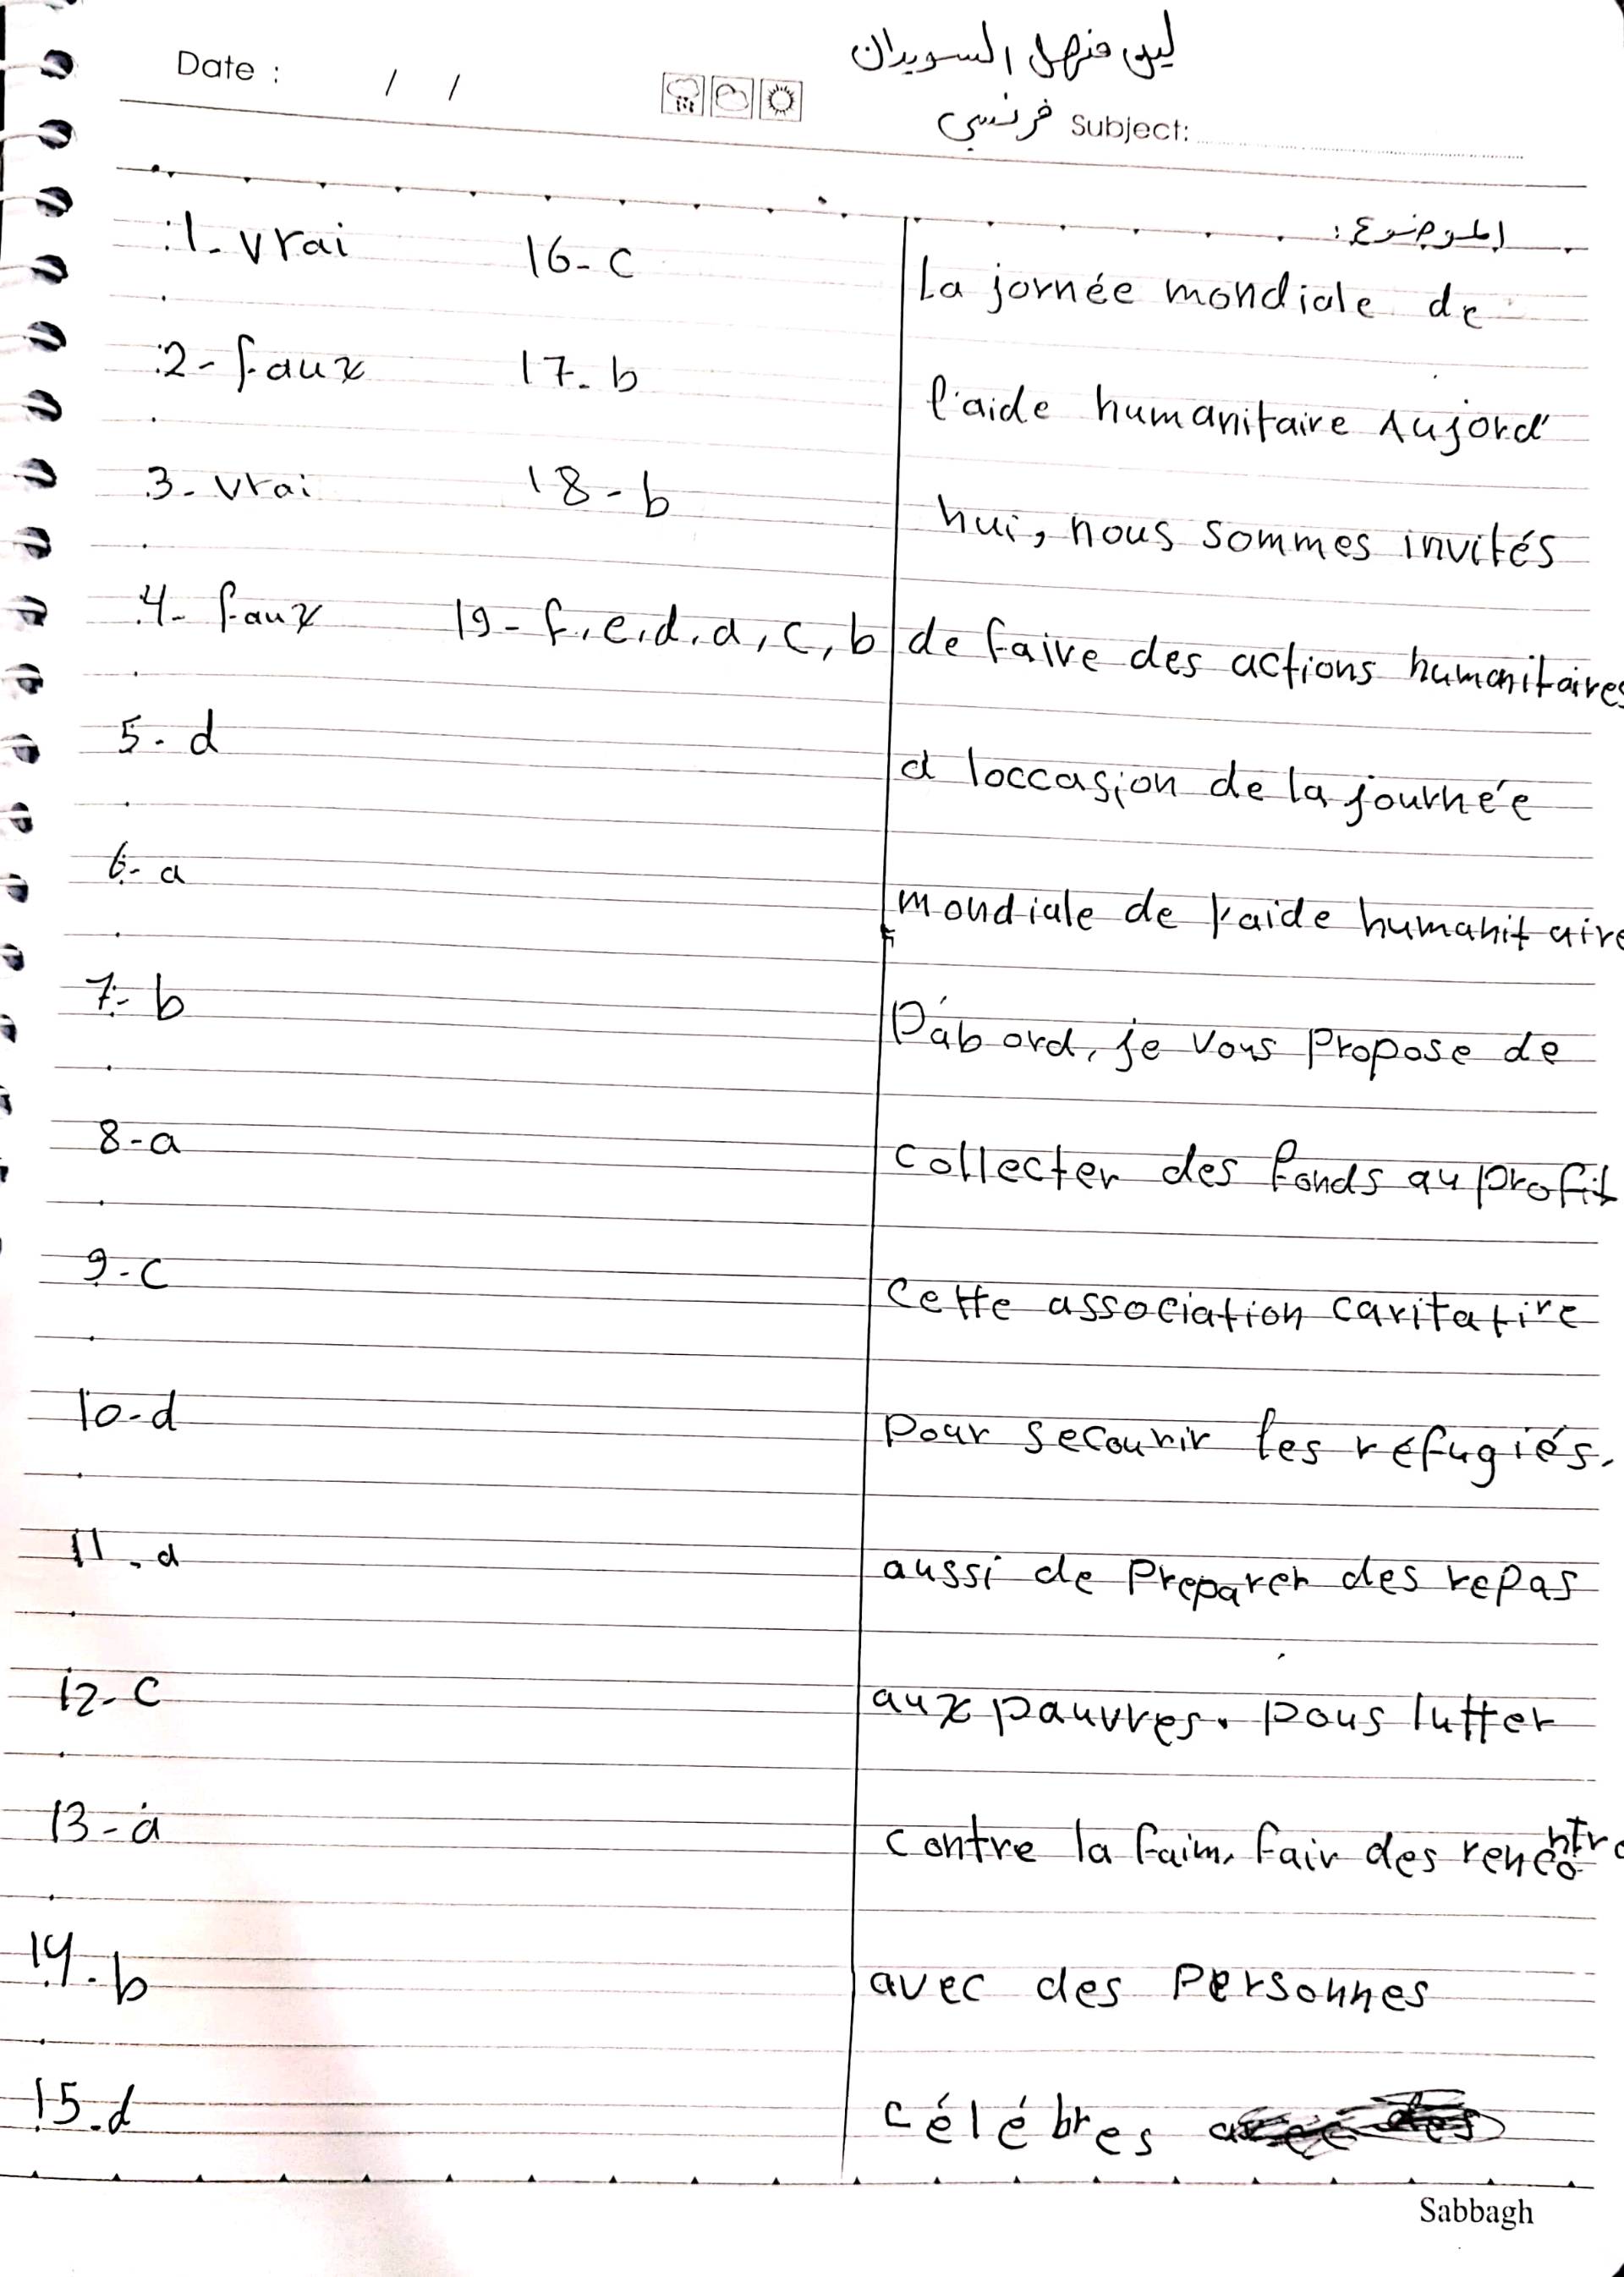 لين منهل السويدان
Date : / /
فرنسي Subject:
1- vrai
2- faux
3- vrai
4- faux
5- d
6- a
7- b
8- a
9- c
10- d
11- d
12- c
13- a
14- b
15- d
16- c
17- b
18- b
19- f, e, d, a, c, b
الموضوع:
La jornée mondiale de
l'aide humanitaire Aujord'
hui, nous sommes invités
de faire des actions humanitaires
a loccasion de la journée
mondiale de l'aide humanitaire
D'abord, je vous propose de
collecter des fonds au profit
cette association caritative
pour secourir les réfugiés.
aussi de preparer des repas
aux pauvres. pous lutter
contre la faim, fair des rencontre
avec des personnes
célébres
Sabbagh